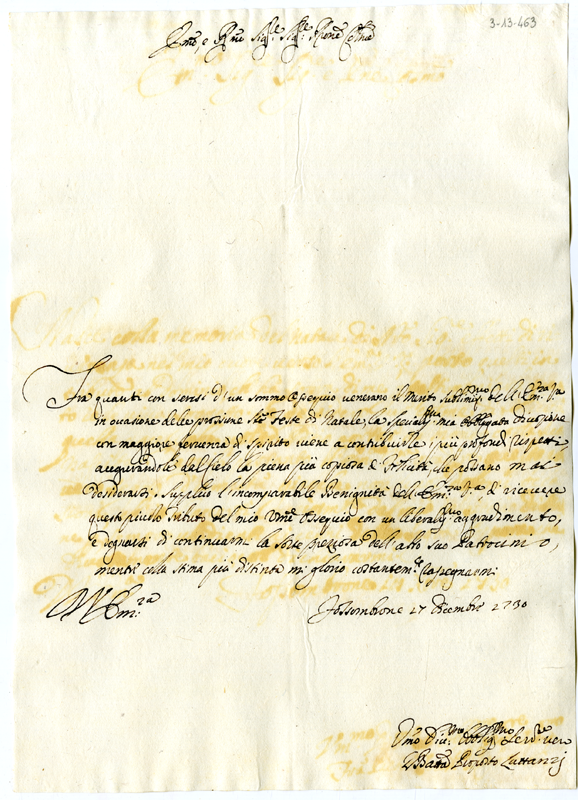 3-13-463
Em̃o, e Rm̃o Sig.re Sig.re Pr̃one Col̃mo
Fra quanti con sensi d'un sommo ossequio venerano il merito sublimiss.mo dell'Em.za V̄ra
in occasione delle prossime S.te Feste di Natale, la specialiss.ma mia obbligata divozione
con maggiore fervenza di spirito viene a contribuirle i più profondi rispetti,
augurandole dal Cielo la piena più copiosa di felicità, che possano mai
desiderarsi. Supplico l'incomparabile Benignità dell'Em.za V.ra di ricevere
questo piccolo tributo del mio Um̃e Ossequio con un liberaliss.mo aggradimento,
e degnarsi di continuarmi la sorte preziosa dell'alto suo Patrocinio,
mentre colla stima più distinta mi glorio costantem.te rassegnarmi
V. Em.za
Fossombrone 27 Dicembre 1730
Um̃o Div.mo Obblig.mo Serv.re vero